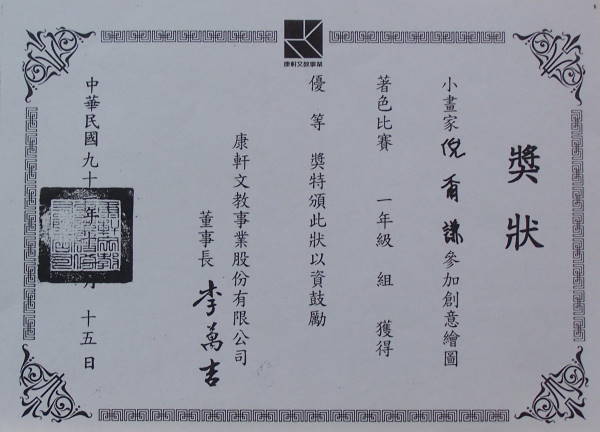 康軒文教事業
獎狀
小畫家倪甯謙參加創意繪圖
著色比賽 一年級 組 獲得
優 等 獎特頒此狀以資鼓勵
康軒文教事業股份有限公司
董事長 李萬吉
中華民國九十 年 月 十五 日